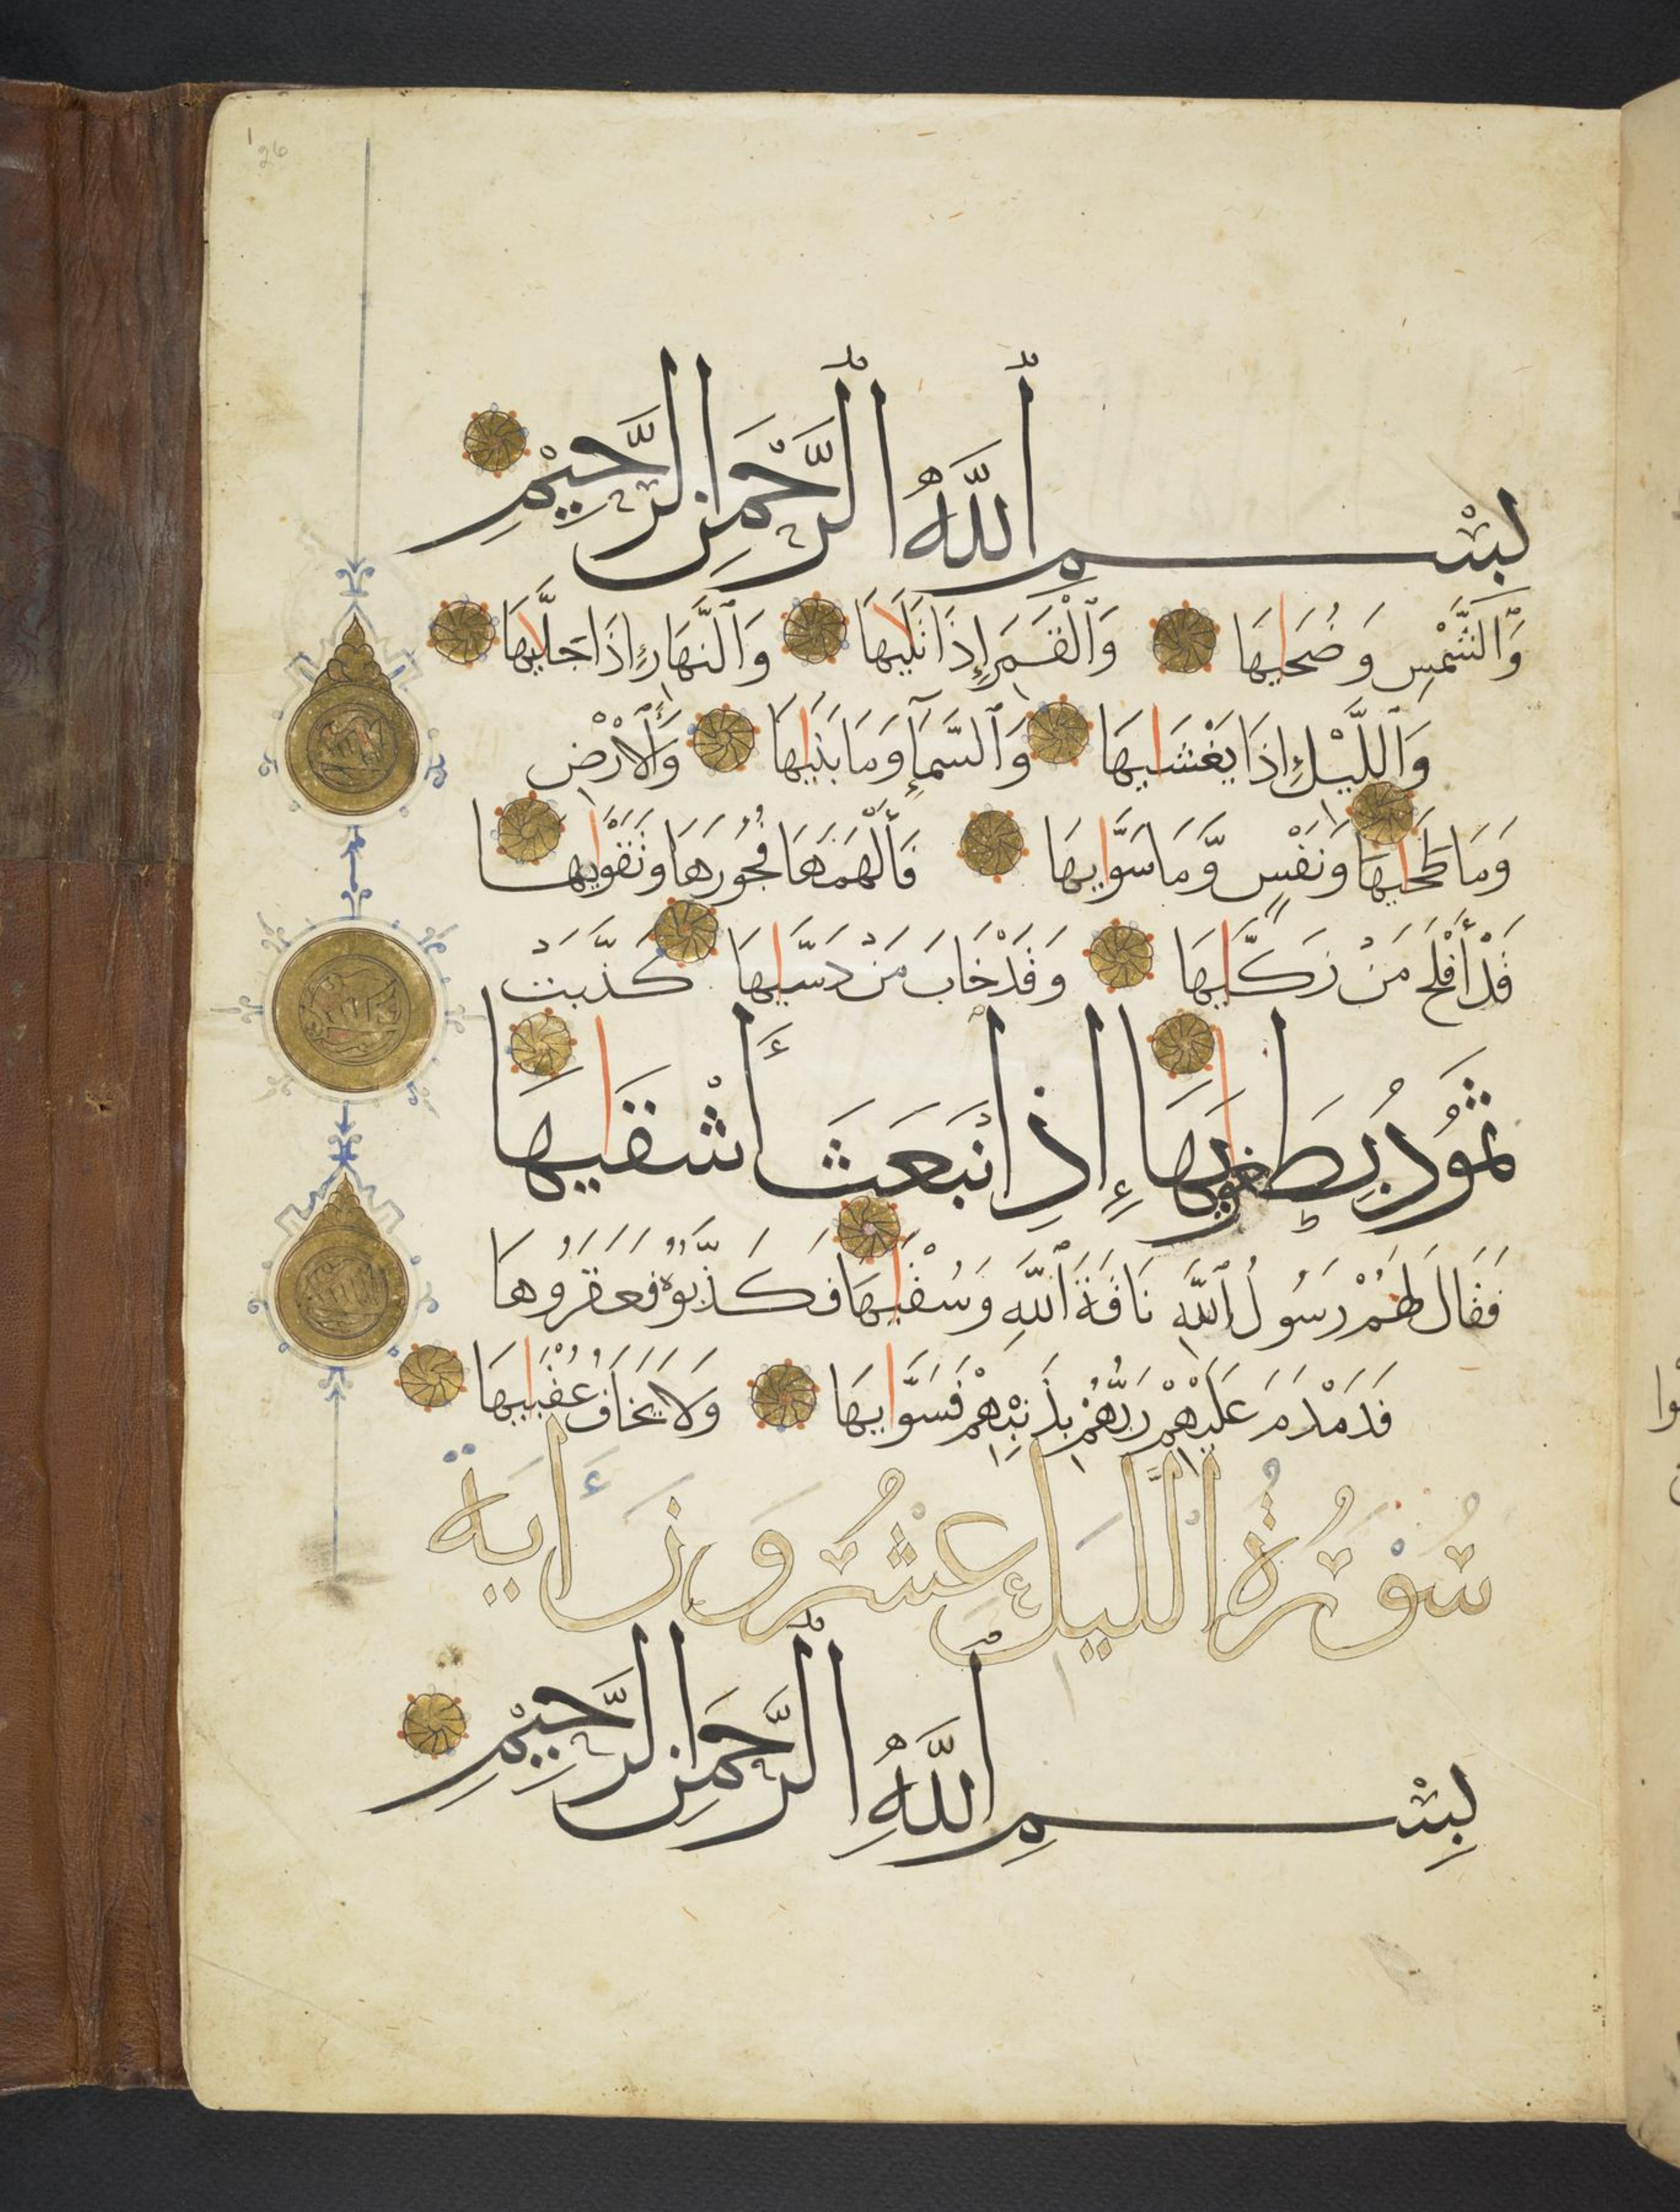 بِسْمِ ٱللَّهِ ٱلرَّحْمَنِ ٱلرَّحِيمِ
وَٱلشَّمْسِ وَضُحَىٰهَا وَٱلْقَمَرِ إِذَا تَلَىٰهَا وَٱلنَّهَارِ إِذَا جَلَّىٰهَا
وَٱللَّيْلِ إِذَا يَغْشَىٰهَا وَٱلسَّمَآءِ وَمَا بَنَىٰهَا وَٱلْأَرْضِ
وَمَا طَحَىٰهَا وَنَفْسٍ وَّمَا سَوَّىٰهَا فَأَلْهَمَهَا فُجُورَهَا وَتَقْوَىٰهَا
قَدْ أَفْلَحَ مَنْ زَكَّىٰهَا وَقَدْ خَابَ مَنْ دَسَّىٰهَا كَذَّبَتْ
ثَمُودُ بِطَغْوَىٰهَا إِذِ ٱنْبَعَثَ أَشْقَىٰهَا
فَقَالَ لَهُمْ رَسُولُ ٱللَّهِ نَاقَةَ ٱللَّهِ وَسُقْيَٰهَا فَكَذَّبُوهُ فَعَقَرُوهَا
فَدَمْدَمَ عَلَيْهِمْ رَبُّهُمْ بِذَنْبِهِمْ فَسَوَّىٰهَا وَلَا يَخَافُ عُقْبَىٰهَا
سُوْرَةُ اللَّيْلِ عِشْرُونَ أَيَة
بِسْمِ ٱللَّهِ ٱلرَّحْمَنِ ٱلرَّحِيمِ
26